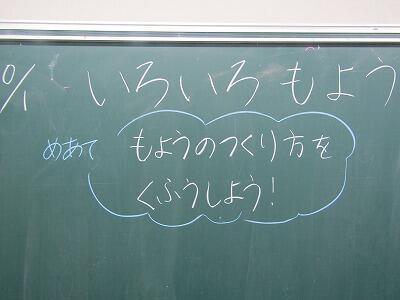 いろいろもよう
めあて もようのつくり方を
くふうしよう!